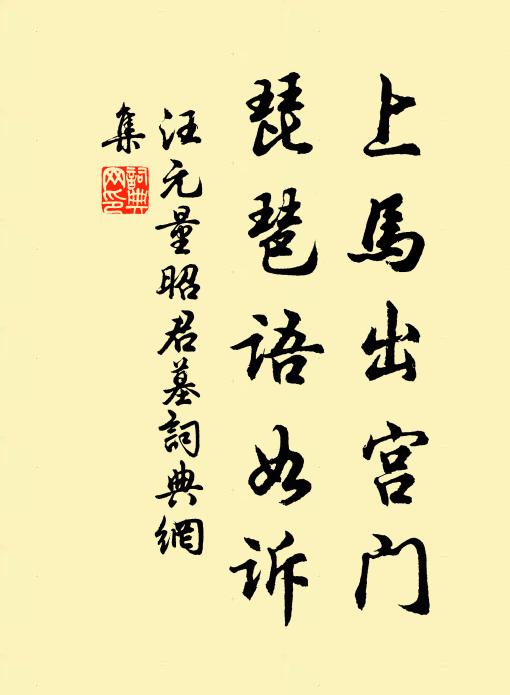 上馬出宫门
琵琶语如诉
汪元量昭君墓詞典網
集
詞典
网印